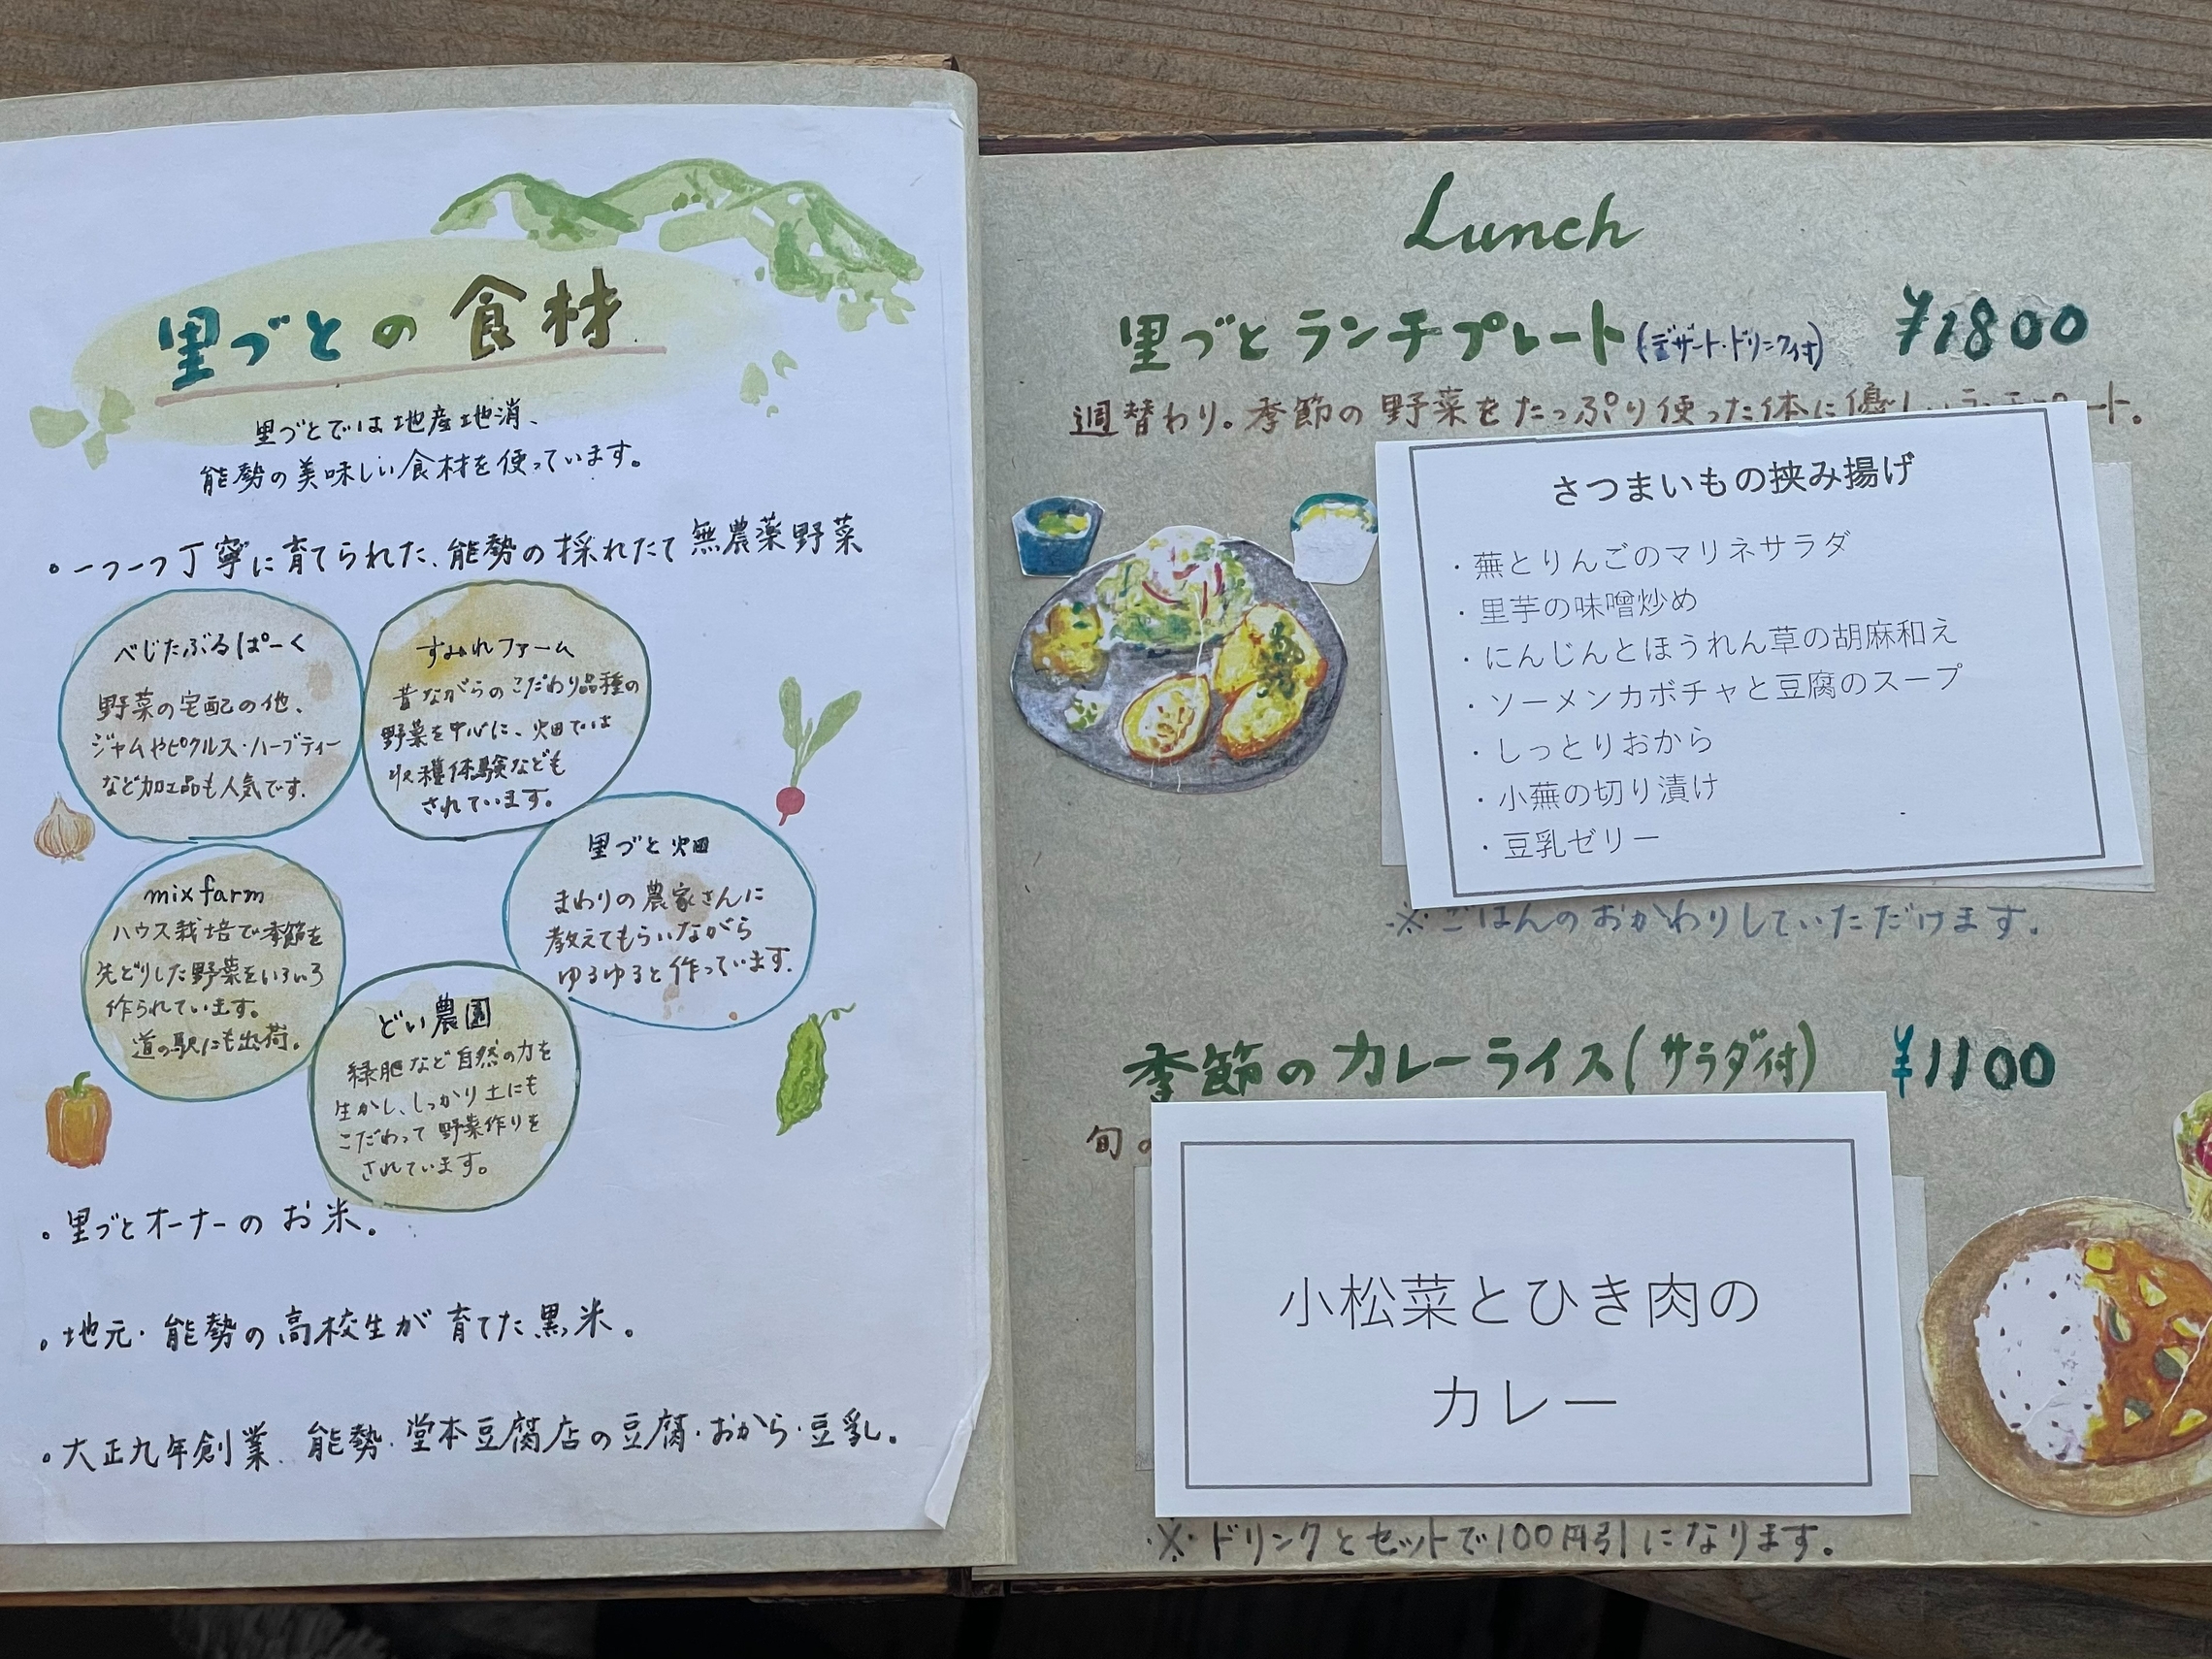 里づとの食材
里づとでは地産地消、
能勢の美味しい食材を使っています。
・一つ一つ丁寧に育てられた、能勢の採れたて無農薬野菜
べじたぶるぱーく
野菜の宅配の他、
ジャムやピクルス・ハーブティー
など加工品も人気です。
すみれファーム
昔ながらのこだわり品種の
野菜を中心に、畑では
収穫体験なども
されています。
里づと畑
まわりの農家さんに
教えてもらいながら
ゆるゆると作っています。
mix farm
ハウス栽培で季節を
先どりした野菜をいろいろ
作られています。
道の駅にも出荷。
どい農園
緑肥など自然の力を
生かし、しっかり土にも
こだわって野菜作りを
されています。
・里づとオーナーのお米。
・地元・能勢の高校生が育てた黒米。
・大正九年創業、能勢・堂本豆腐店の豆腐・おから・豆乳。
Lunch
里づとランチプレート(デザート・ドリンク付) ¥1800
週替わり。季節の野菜をたっぷり使った体に優しいランチプレート。
さつまいもの挟み揚げ
・蕪とりんごのマリネサラダ
・里芋の味噌炒め
・にんじんとほうれん草の胡麻和え
・ソーメンカボチャと豆腐のスープ
・しっとりおから
・小蕪の切り漬け
・豆乳ゼリー
※ごはんのおかわりしていただけます。
季節のカレーライス(サラダ付) ¥1100
旬の
小松菜とひき肉の
カレー
※ドリンクとセットで100円引になります。